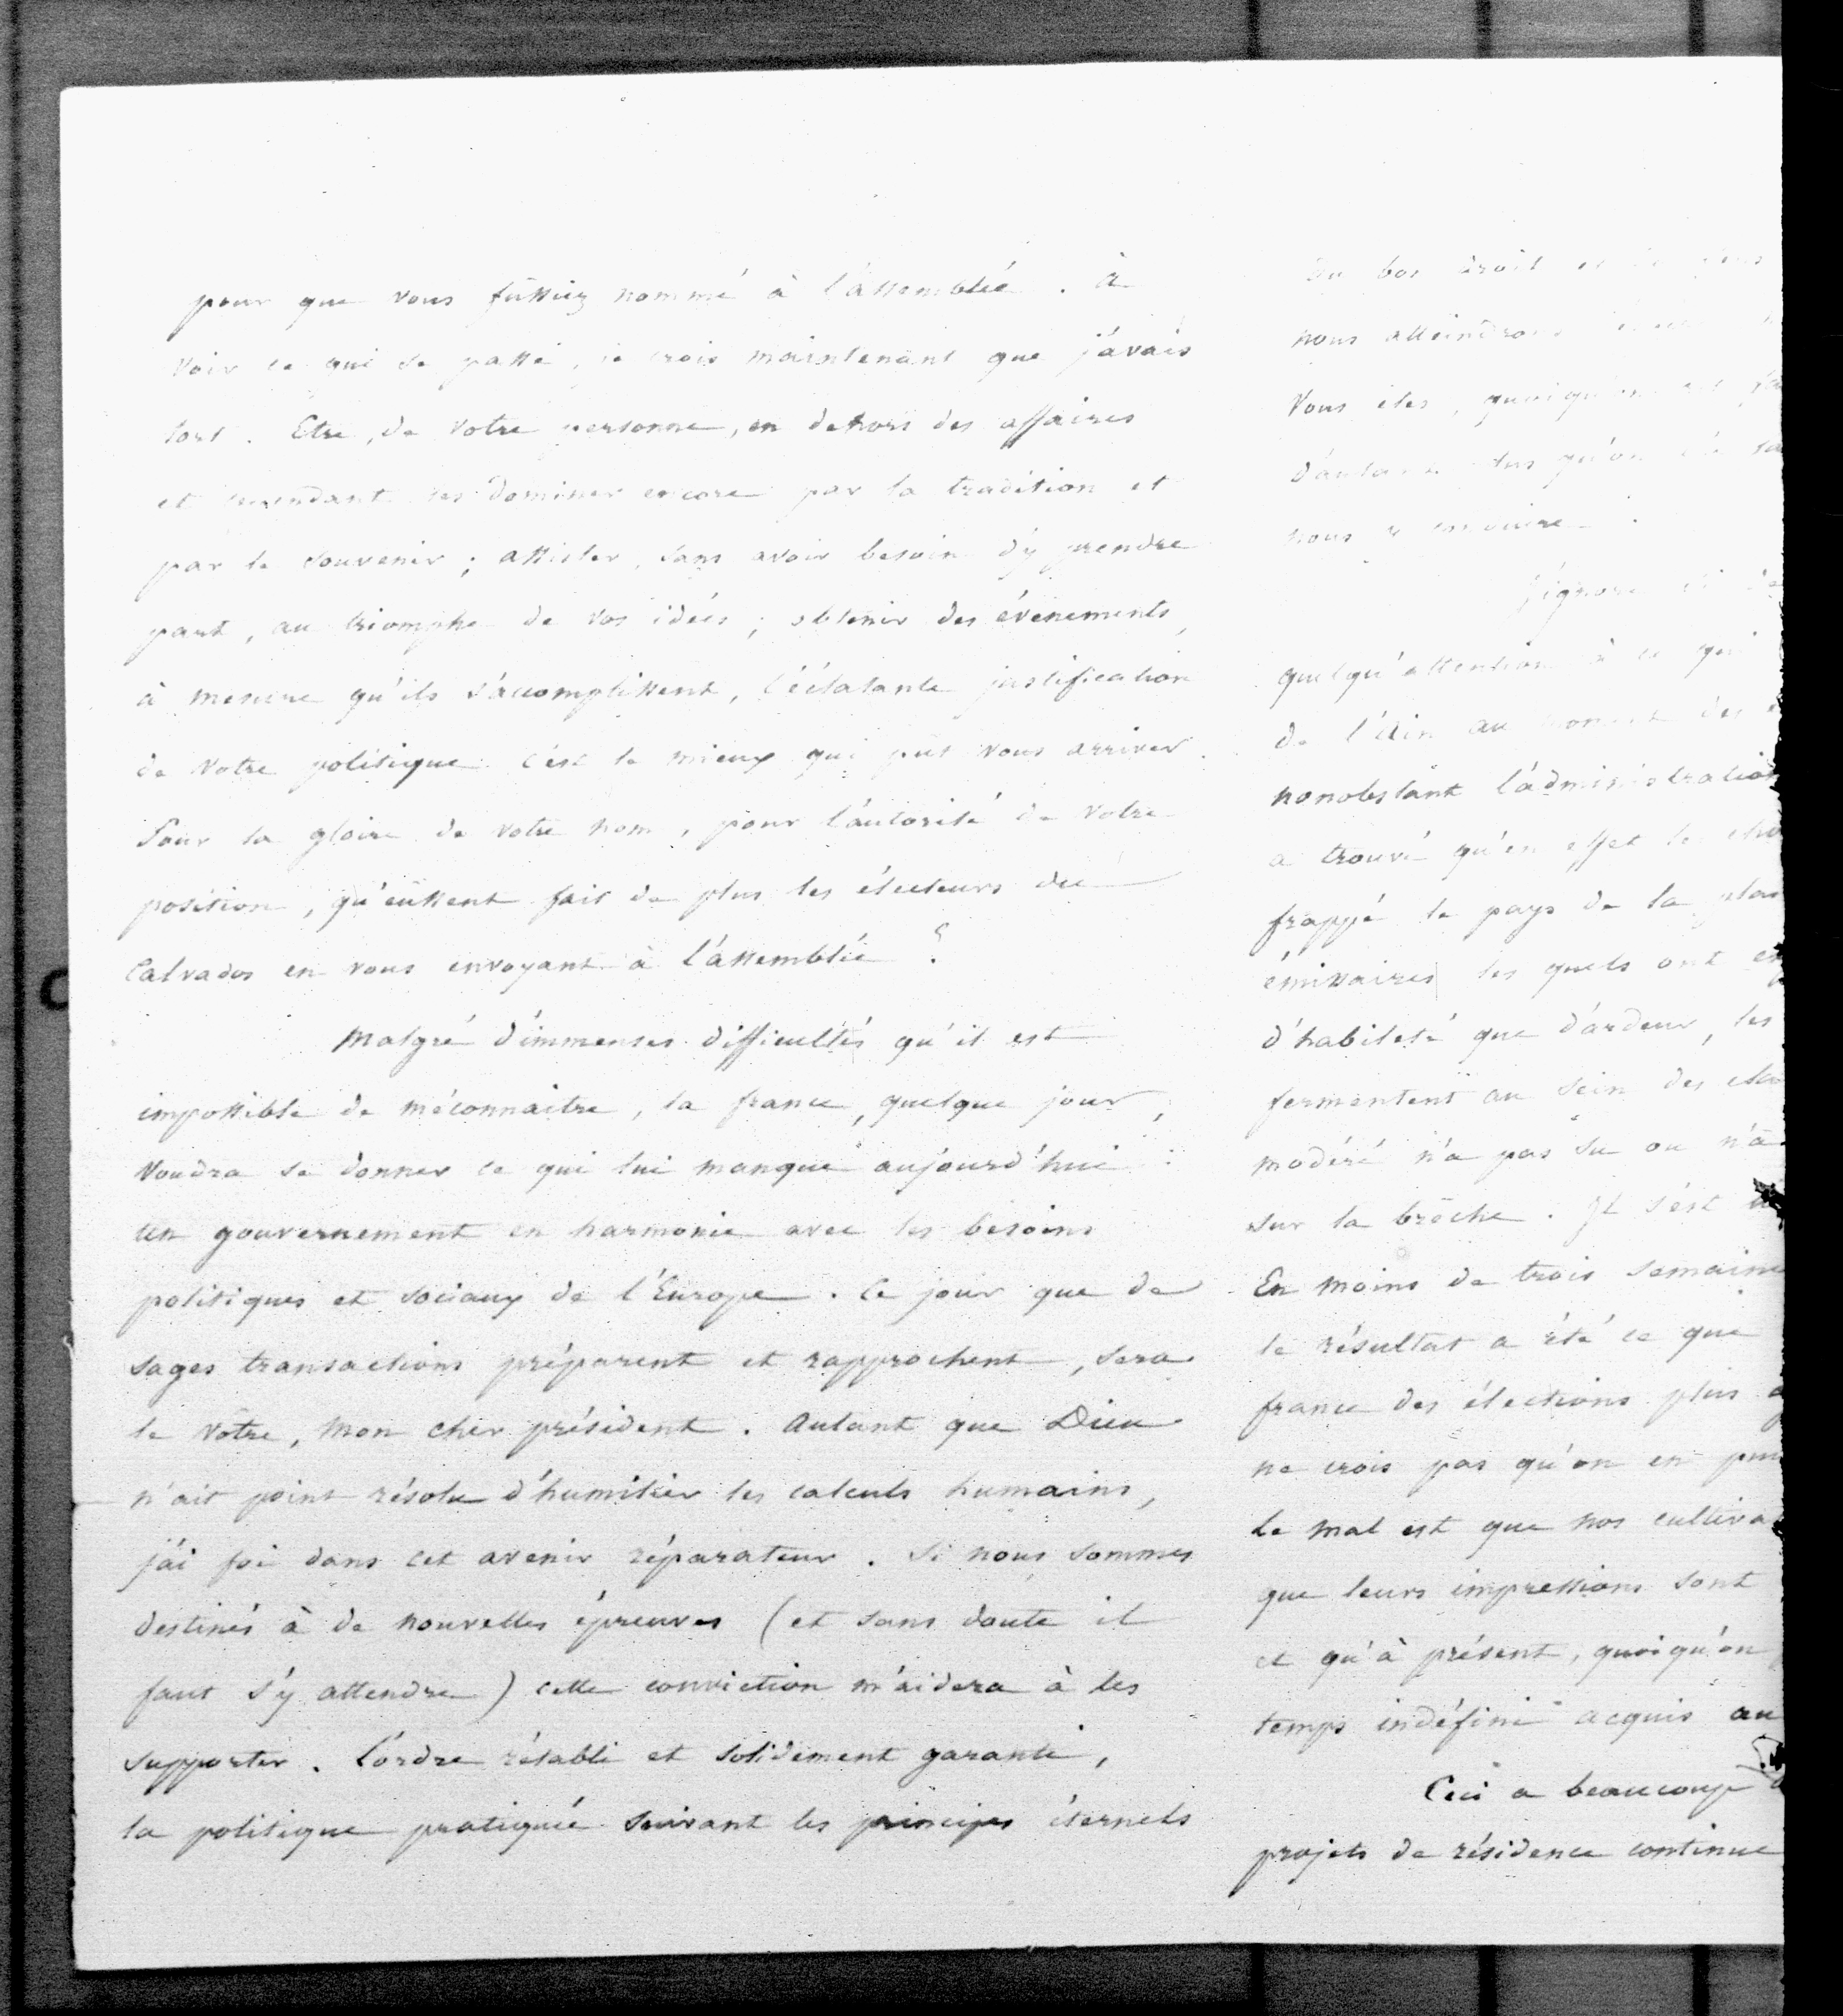 pour que vous fussiez nommé à l'assemblée. à
voir ce qui se passe, je crois maintenant que j'avais
tort. Etre, de votre personne, en dehors des affaires
et cependant les dominer encore par la tradition et
par le souvenir; assister, sans avoir besoin d'y prendre
part, au triomphe de vos idées; obtenir des événements,
à mesure qu'ils s'accomplissent, l'éclatante justification
de votre politique c'est le mieux qui pût vous arriver.
Pour la gloire de votre nom, pour l'autorité de votre
position, qu'eussent fait de plus les électeurs du
Calvados en vous envoyant à l'assemblée ?
Malgré d'immenses difficultés qu'il est
impossible de méconnaitre, la france, quelque jour,
voudra se donner ce qui lui manque aujourd'hui :
un gouvernement en harmonie avec les besoins
politiques et sociaux de l'Europe. Ce jour que de
sages transactions préparent et rapprochent, sera
le vôtre, mon cher président. Autant que Dieu
n'ait point résolu d'humilier les calculs humains,
j'ai foi dans cet avenir réparateur. Si nous sommes
destinés à de nouvelles épreuves (et sans doute il
faut s'y attendre) cette conviction m'aidera à les
supporter. L'ordre rétabli et solidement garanti,
la politique pratiquée suivant les principes éternels
du bon droit et
nous atteindrons
Vous êtes,
d'autant plus qu'on
nous
J'ignore si
quelqu'attention à ce qui
de l'Ain au moment des
nonobstant l'administration
a trouvé qu'en effet le
frappé le pays de la
émissaires les quels ont
d'habileté que d'ardeur, les
fermentent au sein des
modéré n'a pas su ou n'a
sur la brèche. Il s'est
En moins de trois semaine
le résultat a été ce que
france des élections plus
ne crois pas qu'on en
Le mal est que nos
que leurs impressions sont
et qu'à présent, quoiqu'on
temps indéfini acquis au
Ceci a beaucoup
projets de résidence continue